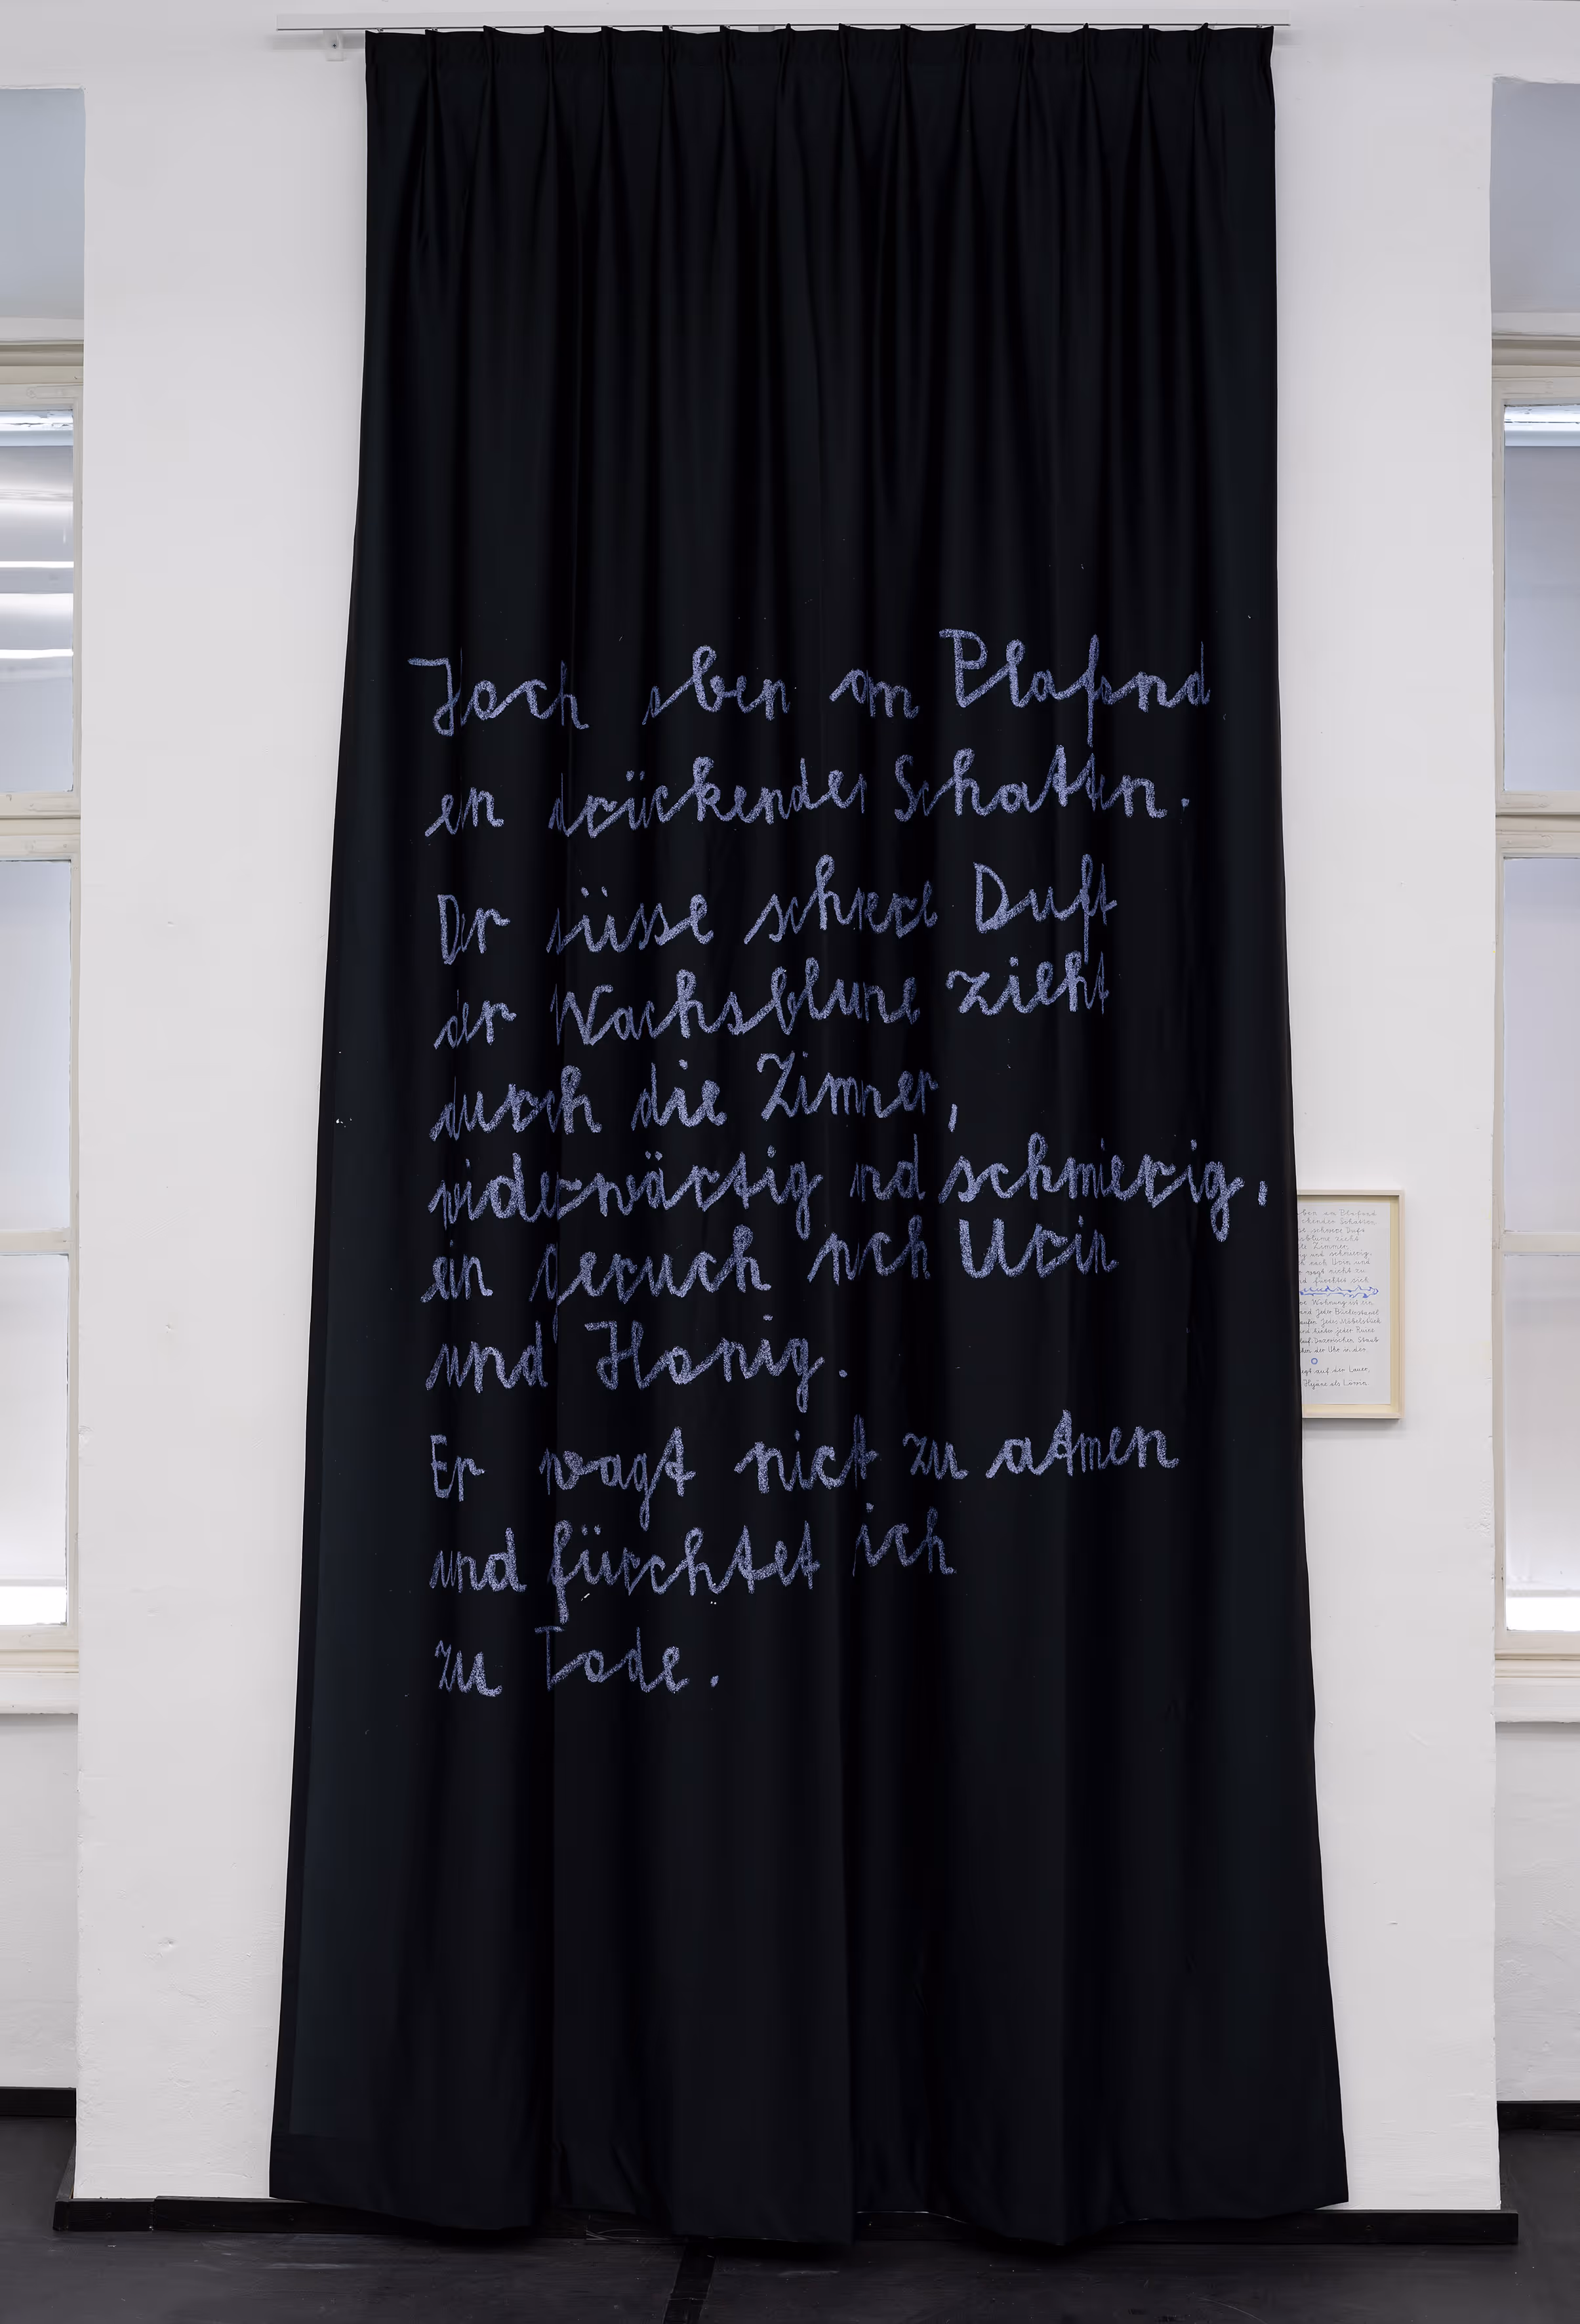 Hoch oben am Plafond
ein drückender Schatten.
Der süsse schwere Duft
der Wachsblume zieht
durch die Zimmer,
widerwärtig und schmierig,
ein Geruch nach Urin
und Honig.
Er wagt nicht zu atmen
und fürchtet sich
zu Tode.
ben am Plafond
ckender Schatten.
sse schwere Duft
sblume zieht
ie Zimmer,
ig und schmierig,
ch nach Urin und
wagt nicht zu
nd fürchtet sich
Wohnung ist ein
and jeder Bücherstapel
aufen. Jedes Möbelstück
und hinter jeder Ruine
Staub
hen der Uhr in den
egt auf der Lauer,
Hyäne als Löwin.